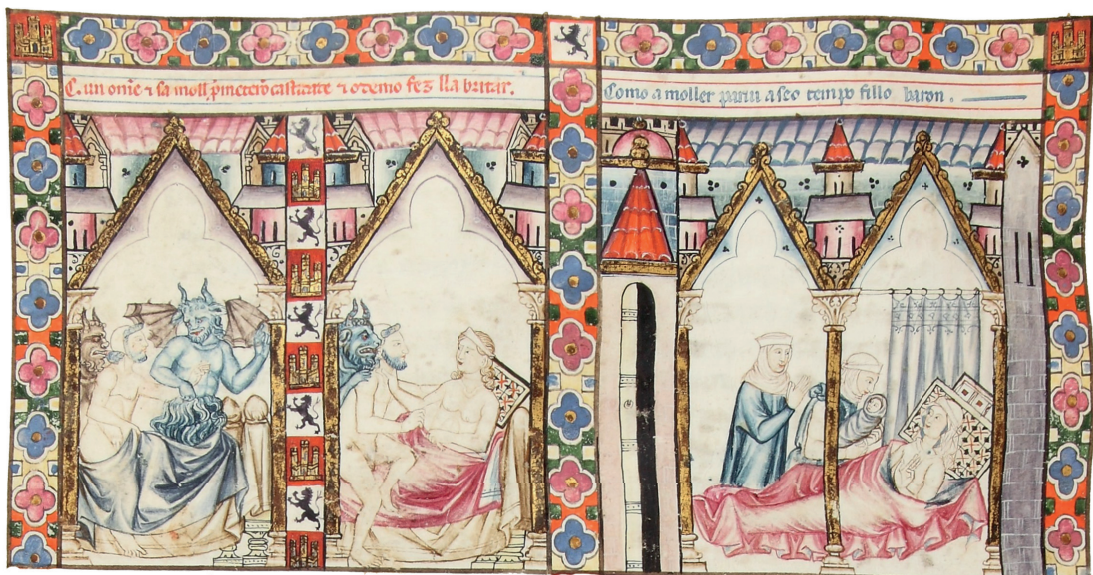 C. un om̃e ⁊ sa moll̃ p̃meterõ castidade ⁊ o demo fez lla britar.
Como a moller pariu a seo tempo fillo baron.